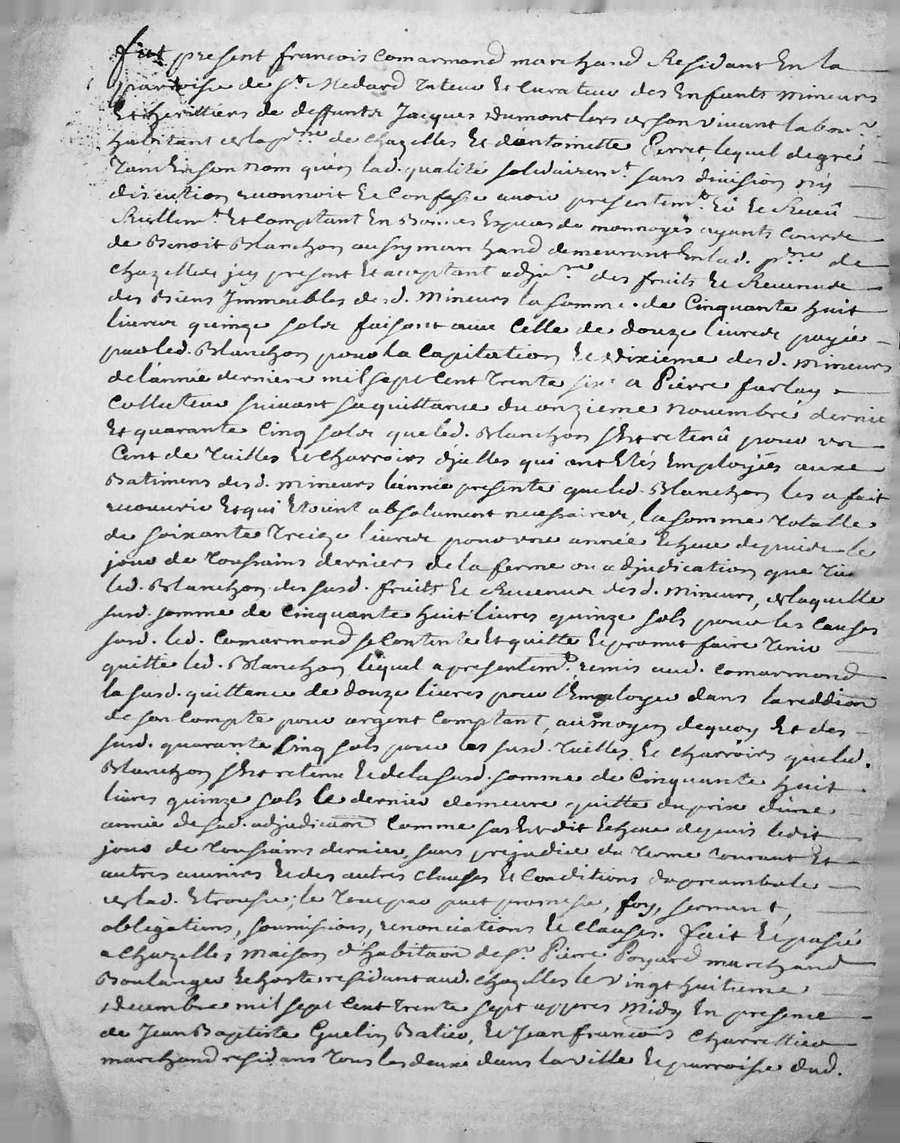 fut present francois Comarmond marchand Residant En la
parroisse de St. Medard Tuteur Et Curateur des Enfants mineurs
Et heritiers de deffunts Jacques Dumont lors de son vivant labour.
habitant de la psse. de Chazelles Et d'antoinette Perret, lequel de gré
Tant En son nom qu'en lad. qualité solidairemt. sans division ny
discution reconnoit Et Confesse avoir presentemt. Eû Et Receû
Reellemt. Et Comptant En Bonnes Especes de monnoyes ayants cours
de Benoit Blanchon aussy marchand demeurant En lad. psse. de
Chazelles jcy present Et acceptant adjre. des fruits Et Revenus
des Biens Immeubles desd. mineurs la somme de Cinquante huit
livres quinze sols faisont avec Celle de douze livres payée
par led. Blanchon pour la Capitation Et dixieme desd. mineurs
de l'année derniere mil sept Cent trente six a Pierre furlay
Collecteur suivant sa quittance du onzieme novembre dernier
Et quarante Cinq sols que led. Blanchon s'Est retenû pour un
Cent de Tuilles Et Charrois d'jcelles qui ont Etés Employés aux
Batimens desd. mineurs l'année presente que led. Blanchon les a fait
recouvrir Et qui Etoient absolument necessaires, la somme Totalle
de soixante Treize livres pour une année Echeue depuis le
jour de Toussains derniers de la ferme ou adjudication que Tient
led. Blanchon des susd. fruits Et Revenus desd. mineurs, de laquelle
susd. somme de Cinquante huit livres quinze sols pour les Causes
susd. led. Comarmond se Contente Et quitte Et promet faire Tenir
quitte led. Blanchon lequel a presentemt. remis aud. Comarmond
la susd. quittance de douze livres pour l'Employer dans la reddion
de son Compte pour argent Comptant, au moyen de quoy Et des
susd. quarante Cinq sols pour les susd. Tuilles Et charrois que led.
Blanchon s'Est retenu Et de la susd. somme de Cinquante huit
livres quinze sols le dernier demeure quitte du prix d'une
année de sad. adjudicaon Comme sus Est dit Echeue depuis ledit
jour de Toussains dernier, sans prejudice du Terme Courant Et
autres Et des autres Clauses Et Conditions du preambule
de lad. Etrousse; le Tout par pact promesse, foy, serment,
obligations, soumissions, renonciations Et Clauses. fait Et passé
a Chazelles maison d'habitaon de Sr. Pierre Ponard marchand
Boulanger Et hoste residant aud. Chazelles le vingt huitieme
decembre mil sept Cent trente sept appres midy En presence
de Jean Baptiste Guelin Batier, Et Jean francois Charrettier
marchand residans Tous les deux dans la ville Et parroisse dud.